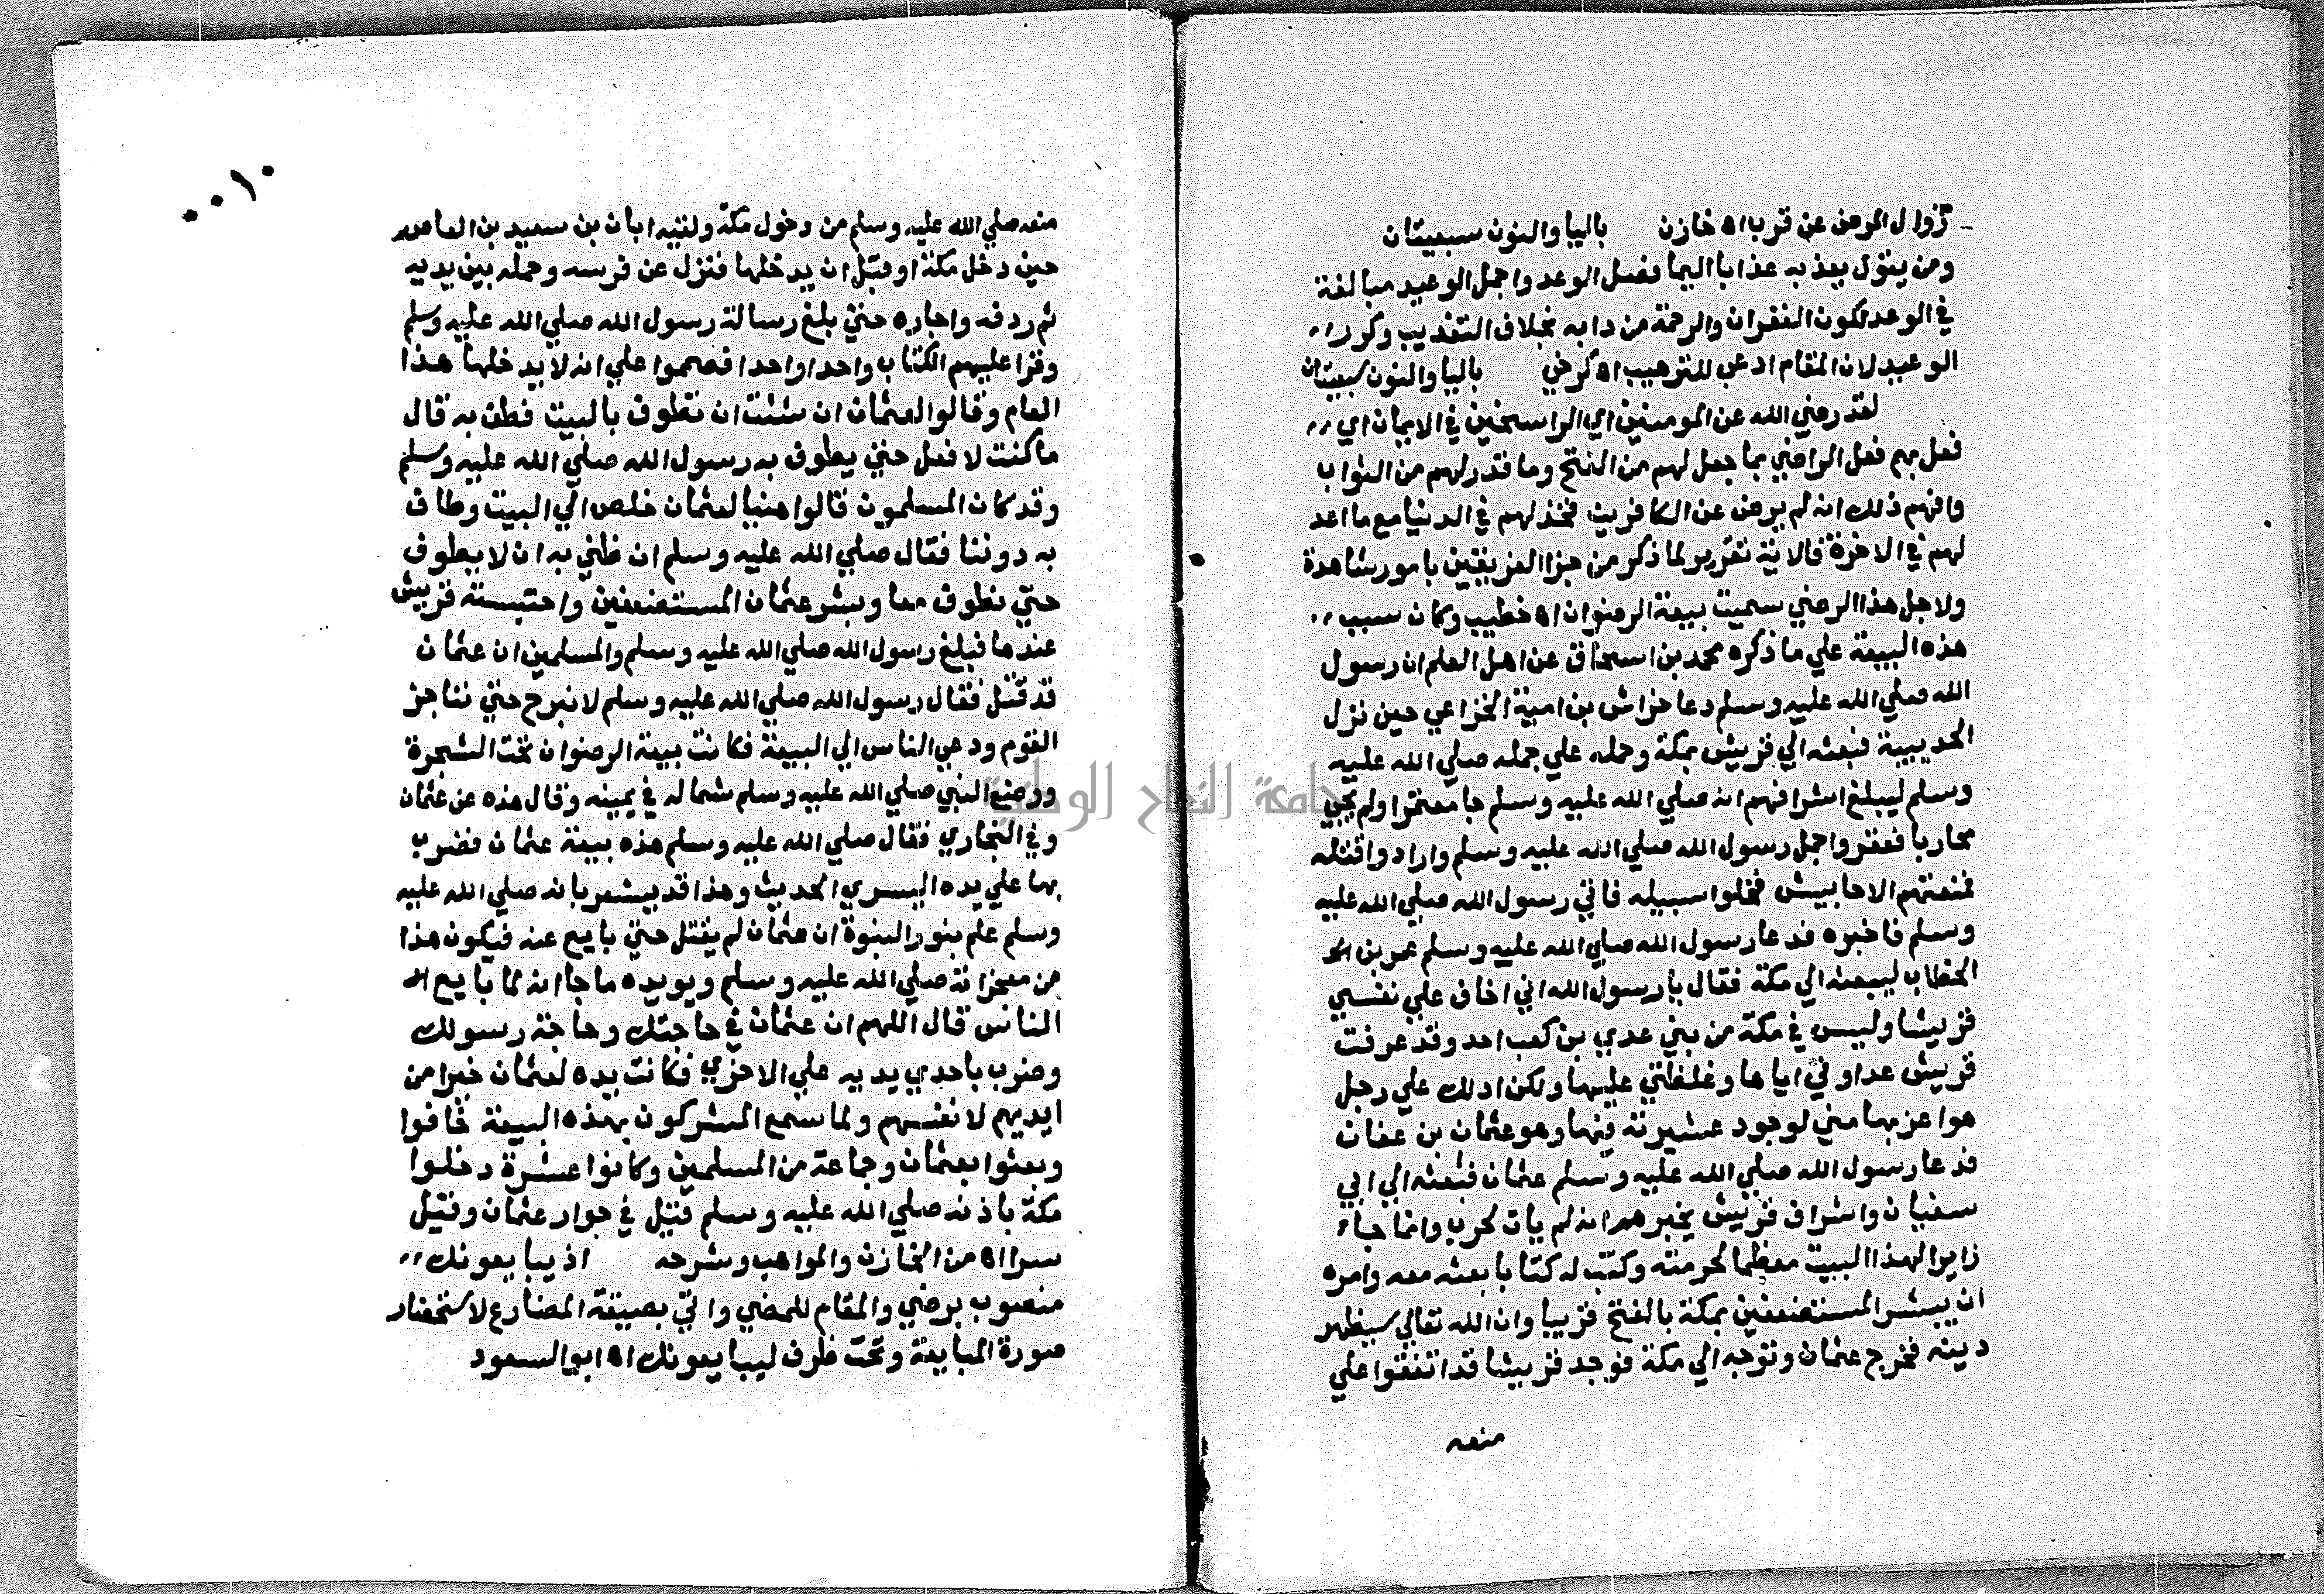 زوال المرض عن قرب اه خازن باليا والنون سبعيتان
ومن يتول يعذبه عذابا اليما فصل الوعد واجمل الوعيد مبالغة
في الوعد لكون الغفران والرحمة من دابه بخلاف التعذيب وكرر
الوعيد لان المقام ادعي للترهيب اه كرخي باليا والنون سبعيتان
لقد رضي الله عن المومنين اي الراسخين في الايمان اي
فعل بهم فعل الراضي بما جعل لهم من الفتح وما قدر لهم من الثواب
وافهم ذلك انه لم يرض عن الكافرين فخذلهم في الدنيا مع ما اعد
لهم في الاخرة فالاية تقرير لما ذكر من جزا الفريقين بامور شاهدة
ولاجل هذا الرضي سميت بيعة الرضوان اه خطيب وكان سبب
هذه البيعة علي ما ذكره محمد بن اسحاق عن اهل العلم ان رسول
الله صلي الله عليه وسلم دعا خراش بن امية الخزاعي حين نزل
الحديبية فبعثه الي قريش بمكة وحمله علي جمله صلي الله عليه
وسلم ليبلغ اشرافهم انه صلي الله عليه وسلم جا معتمرا ولم يجي
محاربا فعقروا جمل رسول الله صلي الله عليه وسلم وارادوا قتله
فمنعتهم الاحابيش فخلوا سبيله فاتي رسول الله صلي الله عليه
وسلم فاخبره فدعا رسول الله صلي الله عليه وسلم عمر بن الخ
الخطاب ليبعثه الي مكة فقال يا رسول الله اني اخاف علي نفسي
قريشا وليس في مكة من بني عدي بن كعب احد وقد عرفت
قريش عداوتي اياها وغلظتي عليها ولكن ادلك علي رجل
هو اعز بها مني لوجود عشيرته فيها وهو عثمان بن عفان
فدعا رسول الله صلي الله عليه وسلم عثمان فبعثه الي ابي
سفيان واشراف قريش يخبرهم انه لم يات لحرب وانما جاء
زايرا لهذا البيت معظما لحرمته وكتب له كتابا بعثه معه وامره
ان يبشر المستضعفين بمكة بالفتح قريبا وان الله تعالي سيظهر
دينه فخرج عثمان وتوجه الي مكة فوجد قريشا قد اتفقوا علي
منعه
٠٠١٠
منعه صلي الله عليه وسلم من دخول مكة ولقيه ابان بن سعيد بن العاص
حين دخل مكة او قبل ان يدخلها فنزل عن فرسه وحمله بين يديه
ثم ردفه واجاره حتي بلغ رسالة رسول الله صلي الله عليه وسلم
وقرا عليهم الكتاب واحدا واحدا فصمموا علي انه لا يدخلها هذا
العام وقالوا لعثمان ان شئت ان تطوف بالبيت فطف به قال
ما كنت لافعل حتي يطوف به رسول الله صلي الله عليه وسلم
وقد كان المسلمون قالوا هنيا لعثمان خلص الي البيت وطاف
به دوننا فقال صلي الله عليه وسلم ان ظني به ان لا يطوف
حتي نطوف معا وبشر عثمان المستضعفين واحتبسته قريش
عندها فبلغ رسول الله صلي الله عليه وسلم والمسلمين ان عثمان
قد قتل فقال رسول الله صلي الله عليه وسلم لا نبرح حتي نناجز
القوم ودعي الناس الي البيعة فكانت بيعة الرضوان تحت الشجرة
ووضع النبي صلي الله عليه وسلم شماله في يمينه وقال هذه عن عثمان
وفي البخاري فقال صلي الله عليه وسلم هذه بيعة عثمان فضرب
بها علي يده اليسري الحديث وهذا قد يشعر بانه صلي الله عليه
وسلم علم بنور النبوة ان عثمان لم يقتل حتي بايع عنه فيكون هذا
من معجزاته صلي الله عليه وسلم ويويده ما جا انه لما بايع ال
الناس قال اللهم ان عثمان في حاجتك وحاجة رسولك
وضرب باحدي يديه علي الاخري فكانت يده لعثمان خيرا من
ايديهم لانفسهم ولما سمع المشركون بهذه البيعة خافوا
وبعثوا بعثمان وجماعة من المسلمين وكانوا عشرة دخلوا
مكة باذنه صلي الله عليه وسلم قيل في جوار عثمان وقيل
سرا اه من الخازن والمواهب وشرحه اذ يبايعونك
منصوب برضي والمقام للمضي واتي بصيغة المضارع لاستحضار
صورة المبايعة وتحت ظرف ليبايعونك اه ابو السعود
جامعة النجاح الوطنية